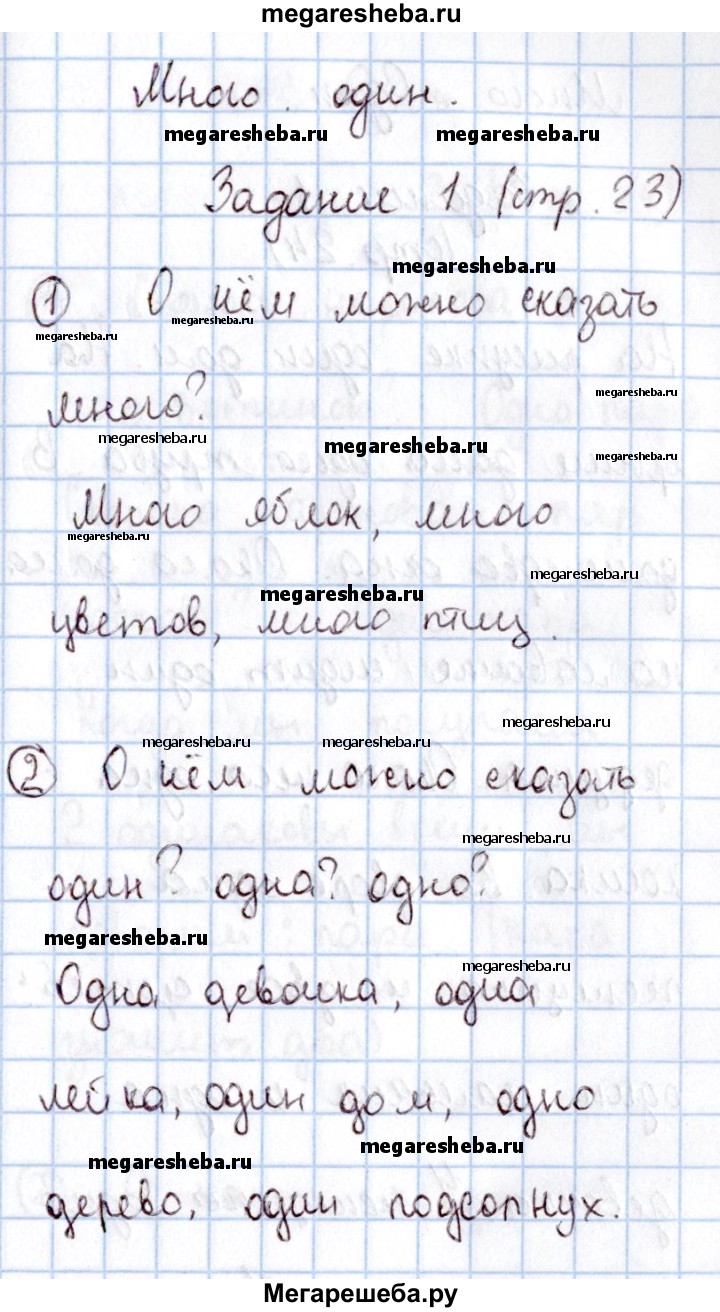 megaresheba.ru
Много. один.
megaresheba.ru megaresheba.ru
Задание 1 (стр. 23)
megaresheba.ru
① О чём можно сказать
megaresheba.ru
megaresheba.ru
много?
megaresheba.ru
megaresheba.ru
megaresheba.ru
megaresheba.ru
Много яблок, много
megaresheba.ru
megaresheba.ru
megaresheba.ru
цветов, много птиц.
megaresheba.ru
megaresheba.ru megaresheba.ru
② О чём можно сказать
megaresheba.ru
один? одна? одно?
megaresheba.ru
megaresheba.ru
Одна девочка, одна
лейка, один дом, одно
megaresheba.ru
megaresheba.ru
дерево, один подсолнух.
Мегарешеба.ру